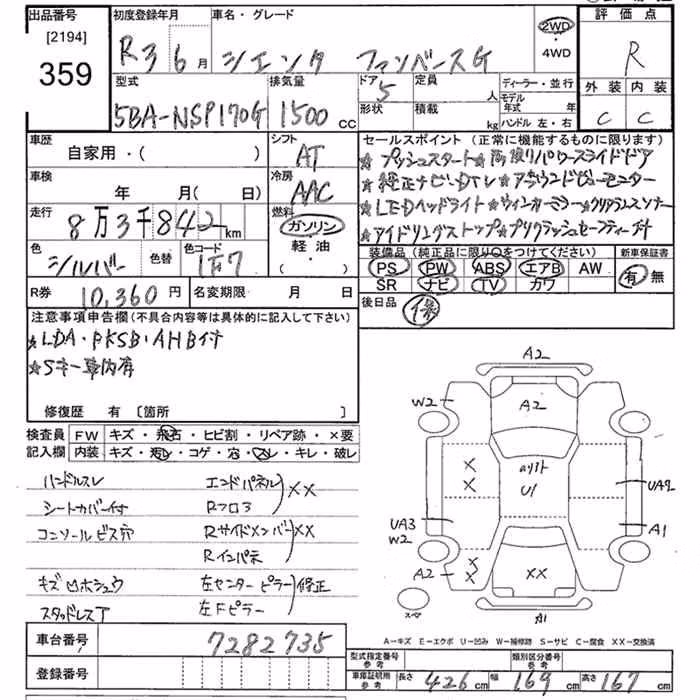 出品番号 初度登録年月 車名・グレード 評価点
[2194] R3 6月 シエンタ ファンベースG 2WD・4WD R
359 外装 内装
型式 排気量 ドア 定員 ディーラー・並行 C C
5BA-NSP170G 1500cc 5 人 モデル年式 年
形状 積載 kg ハンドル 左・右
車歴 シフト セールスポイント(正常に機能するものに限ります)
自家用・( ) AT ★プッシュスタート★両側パワースライドドア
車検 冷房 ★純正ナビ・DTV★アラウンドビューモニター
年 月(日) AAC ★LEDヘッドライト★ウィンカーミラー★クリアランスソナー
走行 燃料 ★アイドリングストップ★プリクラッシュセーフティー付
8万3千842km ガソリン
軽油
・( )
色 色替 色コード 装備品(純正品に限り○をつけてください) 新車保証書
シルバー 1F7 PS PW ABS エアB AW 有・無
SR ナビ TV カワ
R券 10,360円 名変期限 月 日 後日品
注意事項申告欄(不具合内容等は具体的に記入して下さい)
★LDA・PKSB・AHB付
★Sキー車内有
修復歴 有 [箇所 ]
検査員 FW キズ・飛石・ヒビ割・リペア跡・×要
記入欄 内装 キズ・汚レ・コゲ・穴・スレ・キレ・破レ
ハンドルスレ エンドパネル ××
シートカバー付 Rフロア
コンソールビス穴 Rサイドメンバー ××
Rインパネ
キズ凹ホシュウ 左センターピラー 修正
スタッドレスア 左Fピラー
A2
W2 A2
ルーフ
U1
UA2
UA3 A1
W2
A2 ××
スペア A1
A-キズ E-エクボ U-凹み W-補修跡 S-サビ C-腐食 XX-交換済
車台番号 7282735
型式指定番号 参考 類別区分番号 参考
登録番号 車庫証明用 参考 長さ 426cm 幅 169cm 高さ 167cm